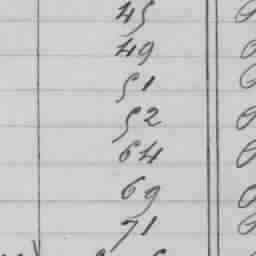 45
49
51
52
64
69
71